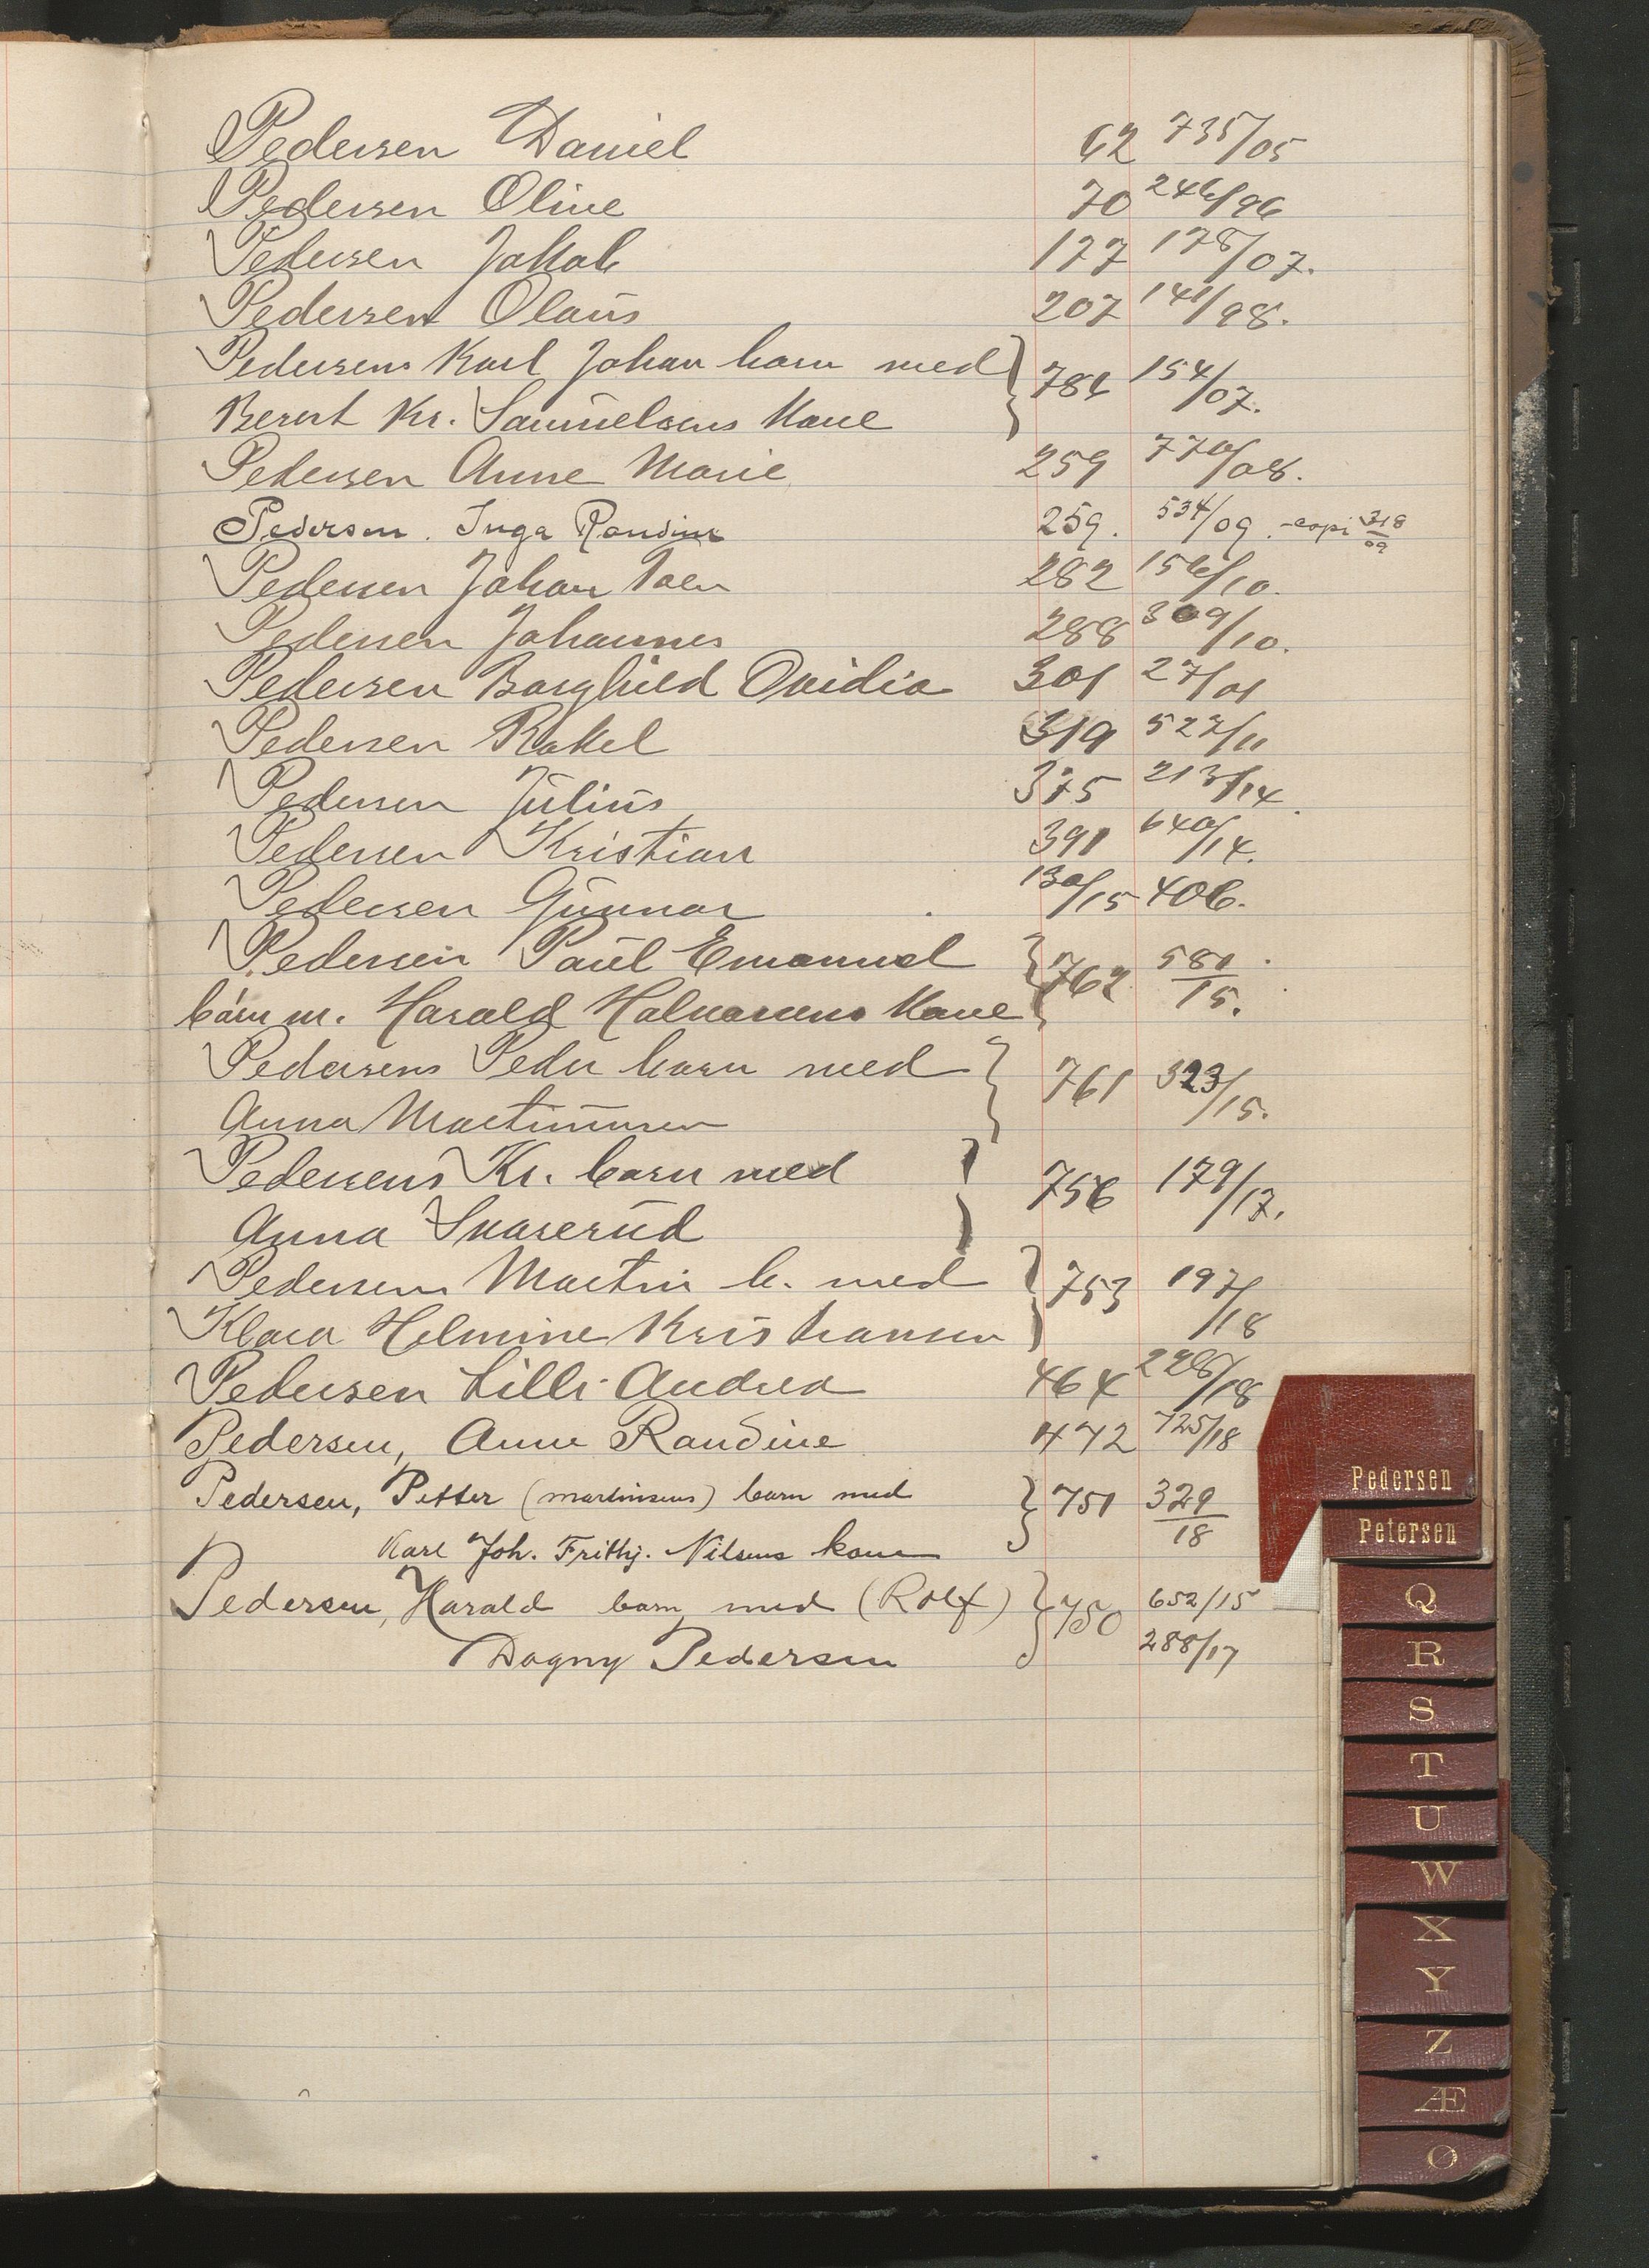 Pedersen Daniel 62 735/05
Pedersen Oline 70 246/96
Pedersen Jakob 177 178/07.
Pedersen Olaus 207 141/98.
Pedersens Karl Johan barn med } 784 154/07.
Berent Kr. Samuelsens Kone
Pedersen Anne Marie 259 770/08.
Pedersen. Inga Randine 259. 534/09. -copi 318/09
Pedersen Johan 282 156/10.
Pedersen Johannes 288 309/10.
Pedersen Borghild Ovidia 301 27/01
Pedersen Rakel 319 527/11
Pedersen Julius 375 213/14.
Pedersen Kristian 391 640/14.
Pedersen Gunnar 130/15 406.
Pedersen Paul Emanuel } 762 581/15.
barn m. Harald Halvorsens Kone
Pedersens Peder barn med } 761 323/15.
Anna Martinsen
Pedersens Kr. barn med } 756 179/17.
Anna Svarerud
Pedersen Martin b. med } 753 197/18
Klara Helmine Kristiansen
Pedersen Lilli Andrea 464 228/18
Pedersen, Anne Randine 472 725/18
Pedersen, Petter (Martinsens) barn med } 751 329/18
Karl Joh. Frithj. Nilsens kone
Pedersen, Harald barn med (Rolf) } 750 652/15
Dagny Pedersen 288/17
Pedersen
Petersen
Q
R
S
T
U
W
X
Y
Z
Æ
Ø